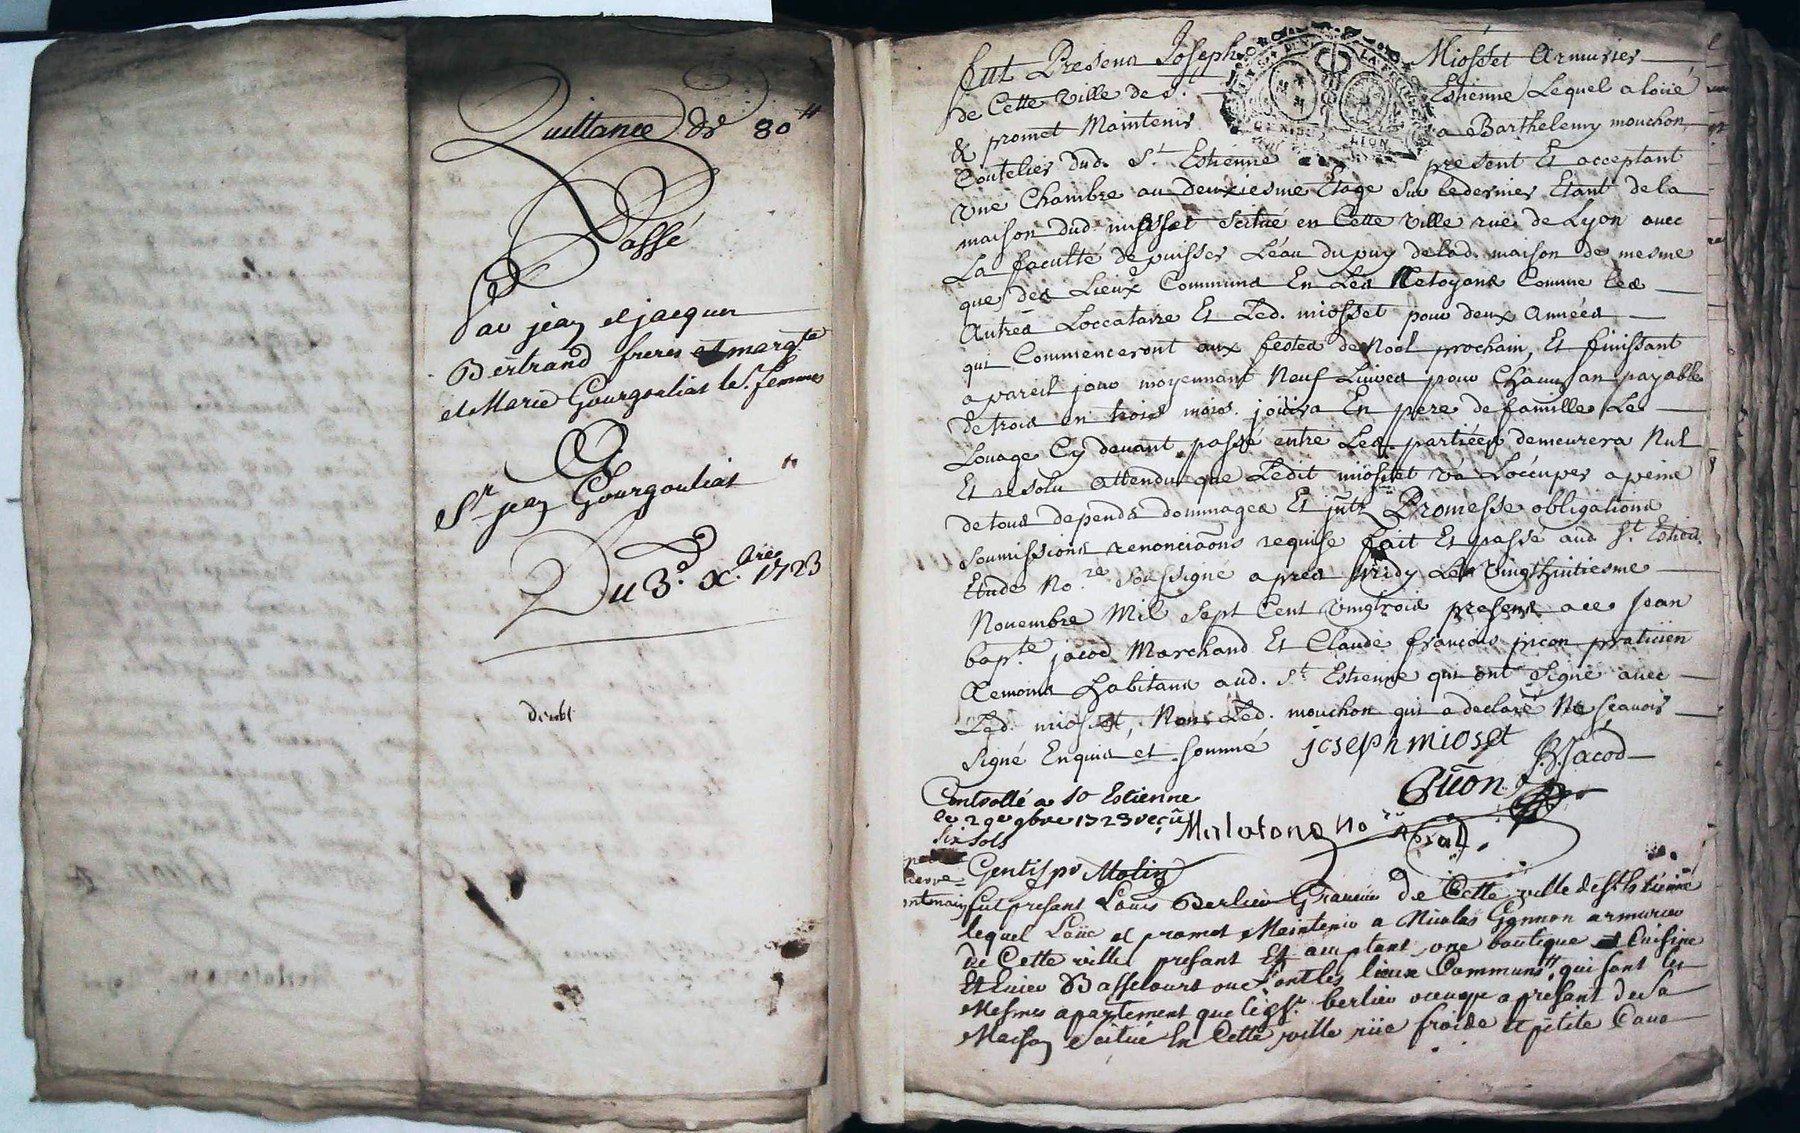 Quittance de 80 ll
Passé
Par jean et jacques
Bertrand freres et margte
et Marie Gourgouliat les femmes
A
Sr jean Gourgouliat
Du 3e Xbre 1723
double
Fut Present Joseph Miosset Armurier
de Cette Ville de St Estienne Lequel a loüé
& promet Maintenir a Barthelemy mouchon
Coutelier dud. St Estienne present Et acceptant
une Chambre au deuxiesme Etage sur le dernier Etant de la
maison dud. miosset scitué en Cette Ville rue de Lyon avec
La faculté de puisser Léau du puy de lad. maison de mesme
que des Lieux Communs En Les Netoyans Comme les
Autres Loccataire Et Led. miosset pour deux Années
qui Commenceront aux festes de Noel prochain, Et finissant
a pareil jour moyennant Neuf Livres pour Chaun an payable
de trois en trois mois. joüira En pere de famille Le
Loüage Cy devant passé entre Les parties demeurera Nul
Et resolu attendu que Ledit miosset va Loccuper a peine
de tous depends dommages Et jntz Promesse obligations
soumissions renonciaõns requise fait Et passé aud St Estien
Etude No.re soussigné apres midy Le Vingthuitiesme
Novembre Mil Sept Cent Vingtrois presens a ce Jean
bapte jacod Marchand Et Claude françois picon praticien
Temoins habitans aud. St Estienne qui ont Signé avec
Led. miosset, Non Led. mouchon qui a declaré Ne scavoir
Signé Enquis et Sommé joseph mioset
JB Jacod
Picon
Controllé a St Estienne
le 29e 9bre 1723 reçü
Six sols
Gentis pr Molin
fut presant Louis Berlier Graveur de Cette ville de St Estienne
lequel Loüe et promet Maintenir a Nicolas Gonnon armurier
de Cette ville presant Et auptant une boutique et Cuisine
Et Basse Cour avec les lieux Communs, qui sont les
Mesmes apartement que le sr. berlier occupe a presant de sa
Maison scitué En Cette ville rüe froide et petite Cave